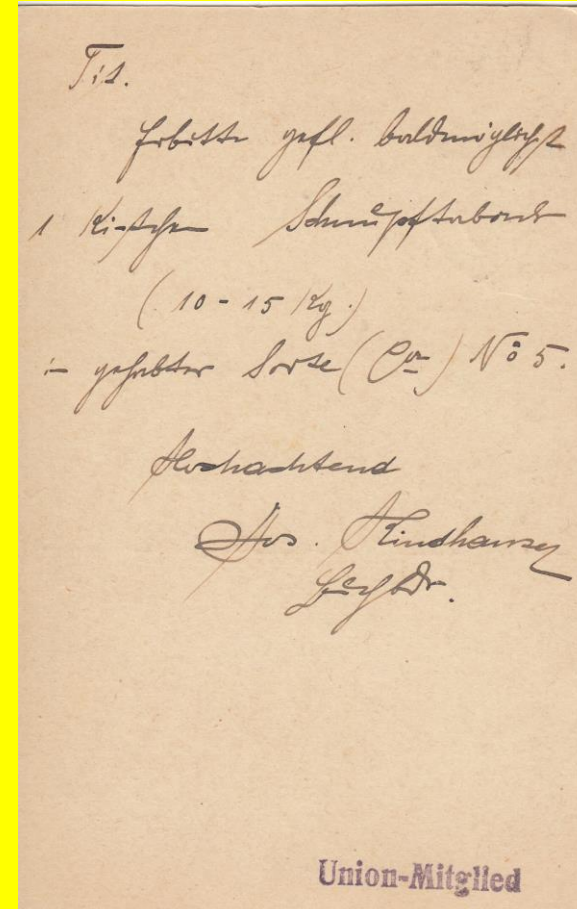 Tit.
Erbitte gefl. baldmöglichst
1 Kistchen Schnupftabak
(10 - 15 Kg.)
in gehabter Sorte ( ) No 5.
Hochachtend
Jos. Kindhauser
Union-Mitglied